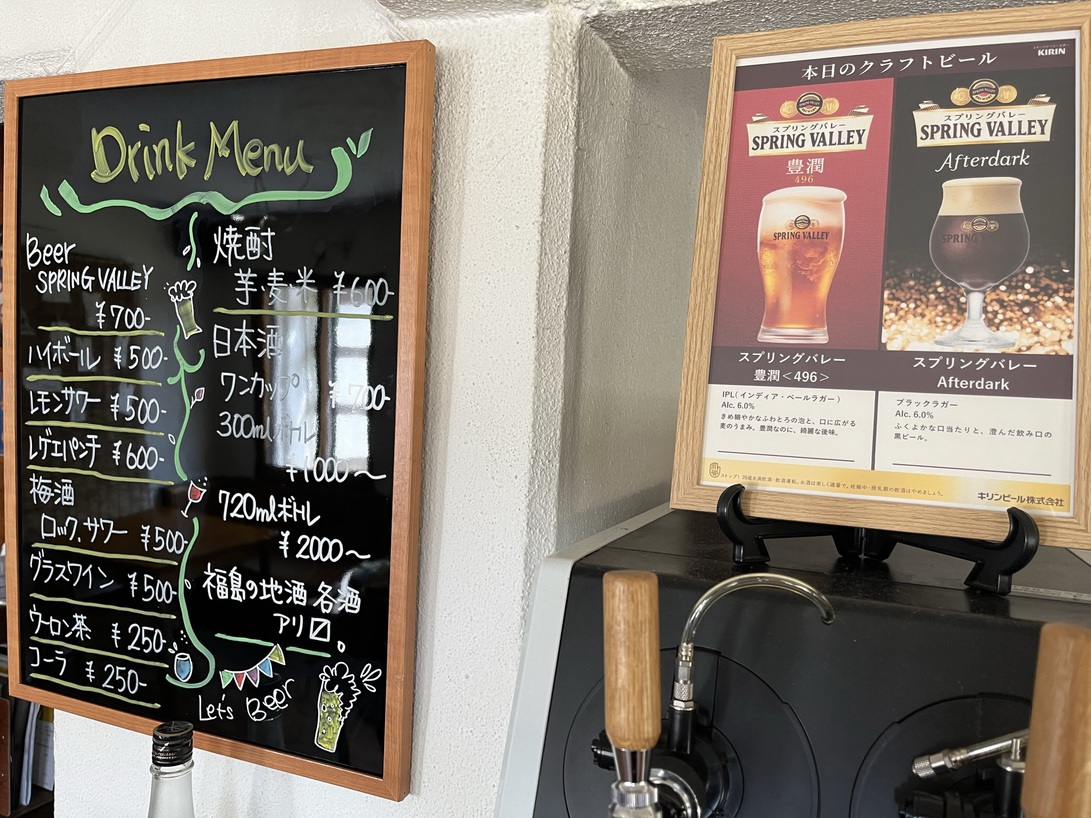 Drink Menu
Beer
SPRING VALLEY
¥700-
ハイボール ¥500-
レモンサワー ¥500-
レゲエパンチ ¥600-
梅酒
ロック、サワー ¥500-
グラスワイン ¥500-
ウーロン茶 ¥250-
コーラ ¥250-
焼酎
芋・麦・米 ¥600-
日本酒
ワンカップ ¥700-
300mlボトル
¥1000〜
720mlボトル
¥2000〜
福島の地酒 各酒
アリ〼。
Let's Beer
KIRIN
本日のクラフトビール
スプリングバレー
SPRING VALLEY
豊潤
496
SPRING VALLEY
スプリングバレー
豊潤<496>
IPL(インディア・ペールラガー)
Alc. 6.0%
きめ細やかなふわとろの泡と、口に広がる
麦のうまみ。豊潤なのに、綺麗な後味。
スプリングバレー
SPRING VALLEY
Afterdark
SPRING VALLEY
スプリングバレー
Afterdark
ブラックラガー
Alc. 6.0%
ふくよかな口当たりと、澄んだ飲み口の
黒ビール。
ストップ!20歳未満飲酒・飲酒運転。お酒は楽しく適量で。妊娠中・授乳期の飲酒はやめましょう。
キリンビール株式会社